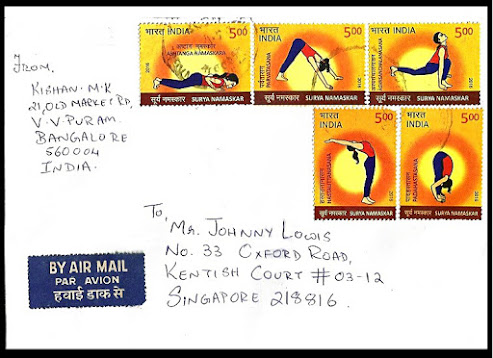 भारत INDIA 5.00
अष्टांग नमस्कार
ASHTANGA NAMASKARA
2016
सूर्य नमस्कार SURYA NAMASKAR
भारत INDIA 5.00
पर्वतासन
PARVATASANA
2016
सूर्य नमस्कार SURYA NAMASKAR
भारत INDIA 5.00
2016
सूर्य नमस्कार SURYA NAMASKAR
FROM,
KISHAN. M.K
21, OLD MARKET RD,
V.V. PURAM.
BANGALORE
560004
INDIA.
भारत INDIA 5.00
हस्तउत्तानासन
HASTAUTTANASANA
2016
सूर्य नमस्कार SURYA NAMASKAR
भारत INDIA 5.00
पादहस्तासन
PADAHASTASANA
2016
सूर्य नमस्कार SURYA NAMASKAR
TO,
MR. JOHNNY LOWIS
NO. 33 OXFORD ROAD,
KENTISH COURT # 03-12
SINGAPORE 218816.
BY AIR MAIL
PAR AVION
हवाई डाक से